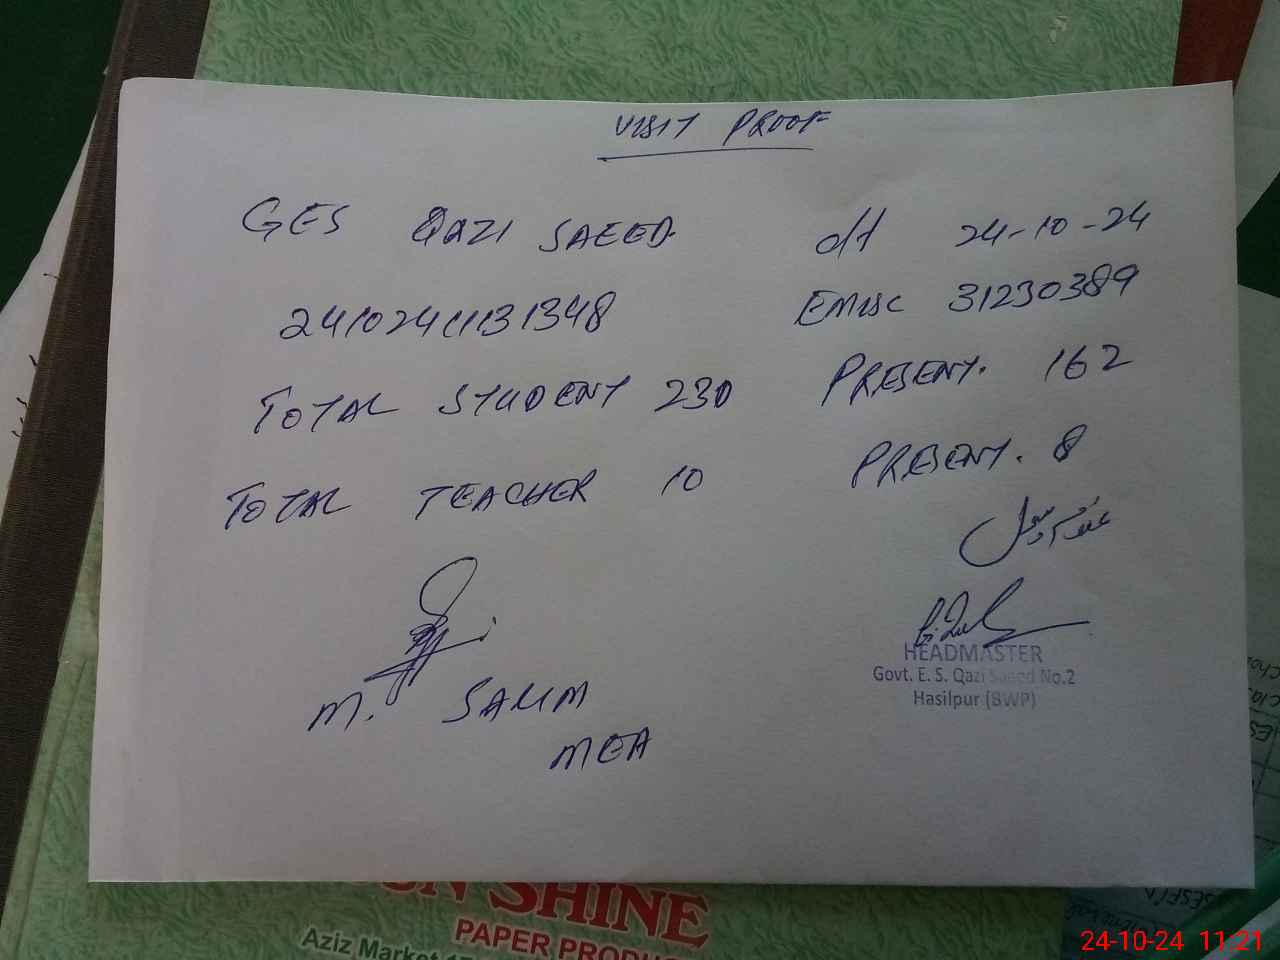 VISIT PROOF
GES QAZI SAEED dt 24-10-24
24102411131348 EMISC 31230389
TOTAL STUDENT 230 PRESENT. 162
TOTAL TEACHER 10 PRESENT. 8
HEADMASTER
Govt. E. S. Qazi Saeed No.2
Hasilpur (BWP)
M. SALIM
MEA
SUN SHINE
PAPER PRODUC
Aziz Market
24-10-24 11:21